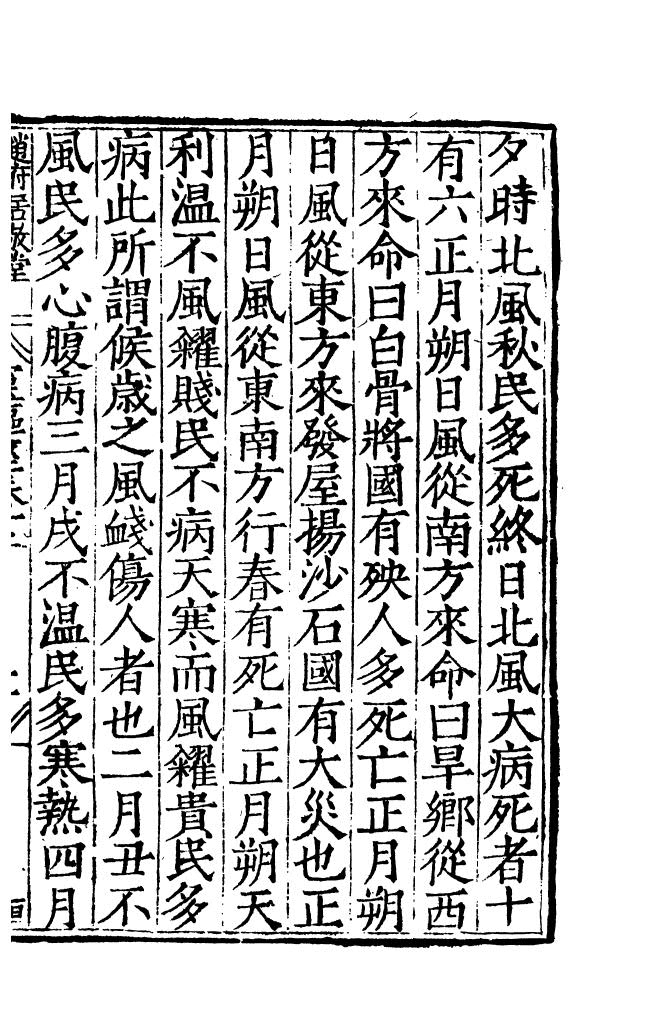 夕時北風秋民多死終日北風大病死者十
有六正月朔日風從南方來命曰旱鄉從西
方來命曰白骨將國有殃人多死亡正月朔
日風從東方來發屋揚沙石國有大災也正
月朔日風從東南方行春有死亡正月朔天
利温不風糴賤民不病天寒而風糴貴民多
病此所謂候歲之風傷人者也二月丑不
風民多心腹病三月戌不温民多寒熱四月
趙府居敬堂